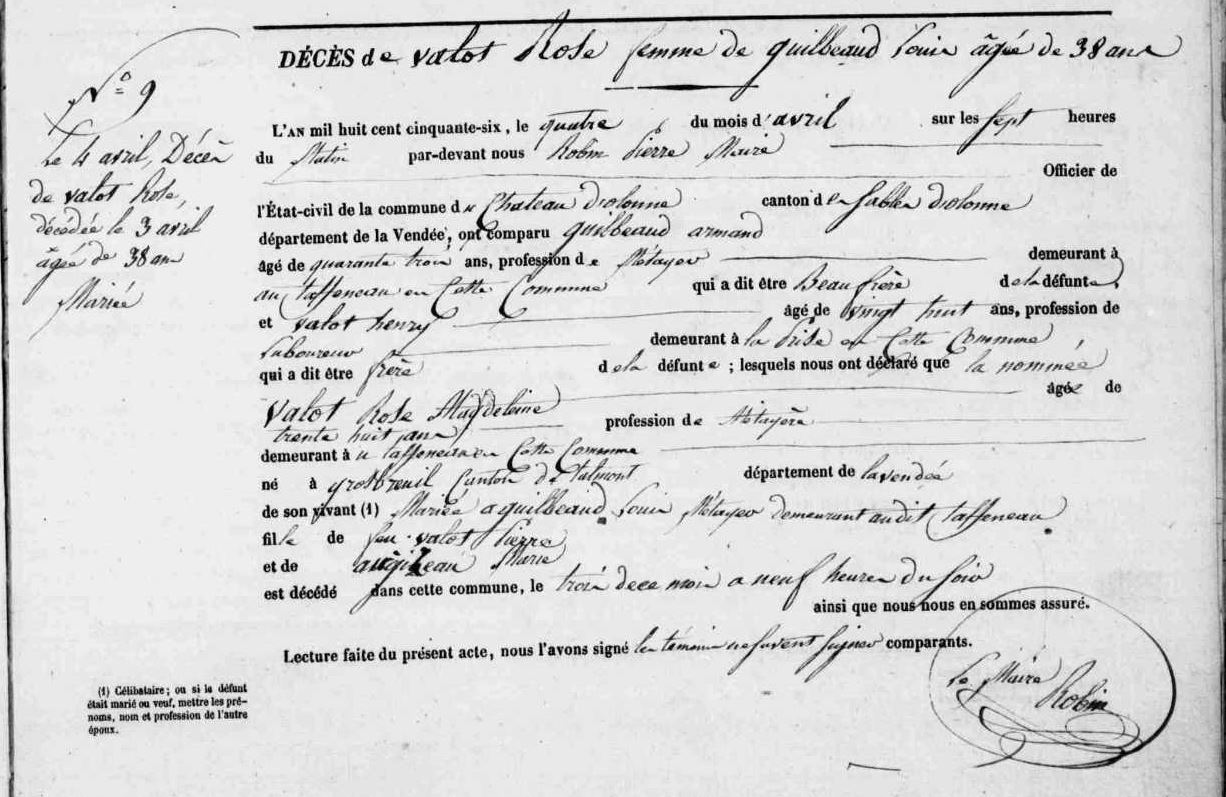 DÉCÈS de valot Rose femme de guilbeaud Louis âgée de 38 ans
N° 9
Le 4 avril, Décès
de valot Rose,
décédée le 3 avril
âgée de 38 ans
Mariée
L'AN mil huit cent cinquante-six, le quatre du mois d'avril sur les sept heures
du Matin par-devant nous Robin Pierre Maire
Officier de
l'État-civil de la commune du Chateau d'olonne canton des sables d'olonne
département de la Vendée, ont comparu guilbeaud armand
âgé de quarante trois ans, profession de Métayer demeurant à
au taffeneau en Cette Commune qui a dit être Beau frère de la défunte
et valot henry âgé de vingt huit ans, profession de
Laboureur demeurant à la Prise en Cette Commune
qui a dit être frère de la défunte ; lesquels nous ont déclaré que la nommée
valot Rose Magdeleine âgée de
trente huit ans profession de Métayère
demeurant à u taffeneau en Cette Commune
né à grosbreuil Canton de talmont département de la vendée
de son vivant (1) Mariée a guilbeaud Louis Métayer demeurant audit taffeneau
fille de feu valot Pierre
et de Marie
est décédé dans cette commune, le trois de ce mois a neuf heures du soir
ainsi que nous nous en sommes assuré.
Lecture faite du présent acte, nous l'avons signé les témoins ne savent signer comparants.
Le Maire
Robin
(1) Célibataire ; ou si le défunt
était marié ou veuf, mettre les pré-
noms, nom et profession de l'autre
époux.